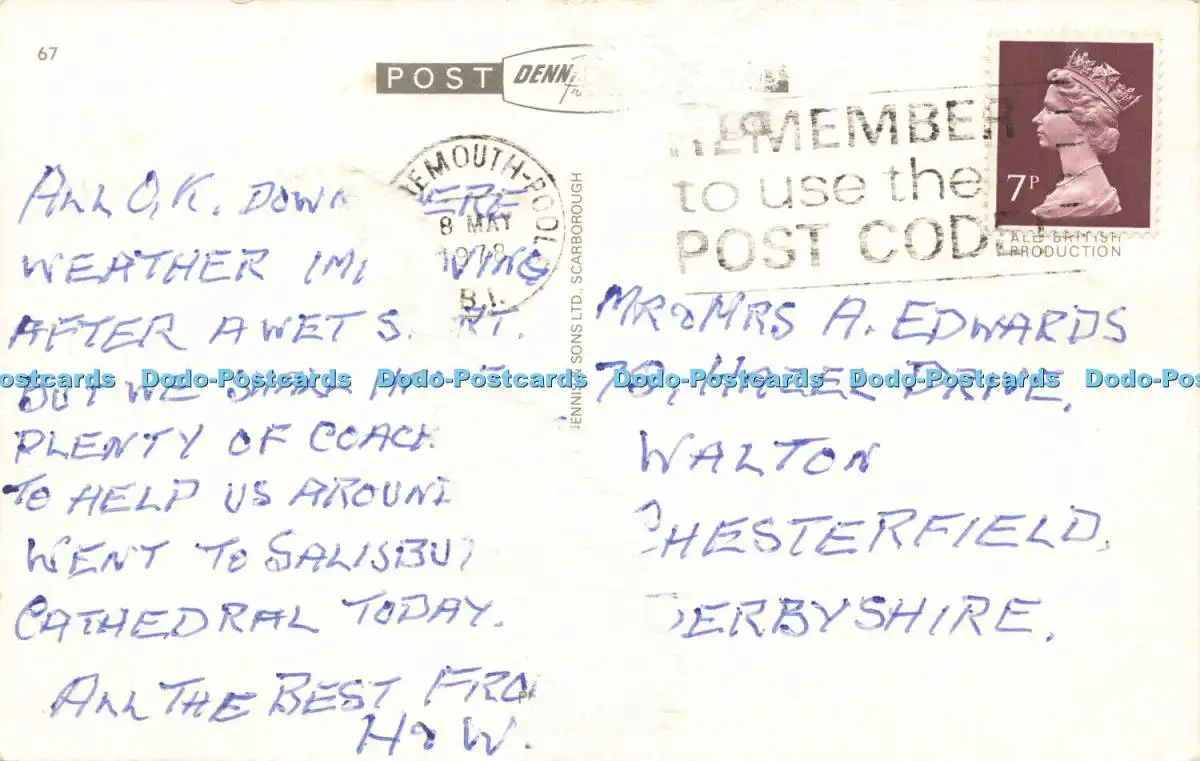 67
POST DENN
EMOUTH-POOL
8 MAY
1978
B.I.
REMEMBER
to use the
POST CODE
7P
ALL BRITISH
PRODUCTION
SONS LTD., SCARBOROUGH
ALL O.K. DOWN ERE
WEATHER IM VING
AFTER A WET S RT.
BUT WE
PLENTY OF COACH
TO HELP US AROUND
WENT TO SALISBU
CATHEDRAL TODAY.
ALL THE BEST FRO
H & W.
MR & MRS A. EDWARDS
HAZEL DRIVE,
WALTON
CHESTERFIELD,
DERBYSHIRE.
ostcards Dodo-Postcards Dodo-Postcards Dodo-Postcards Dodo-Postcards Dodo-Pos